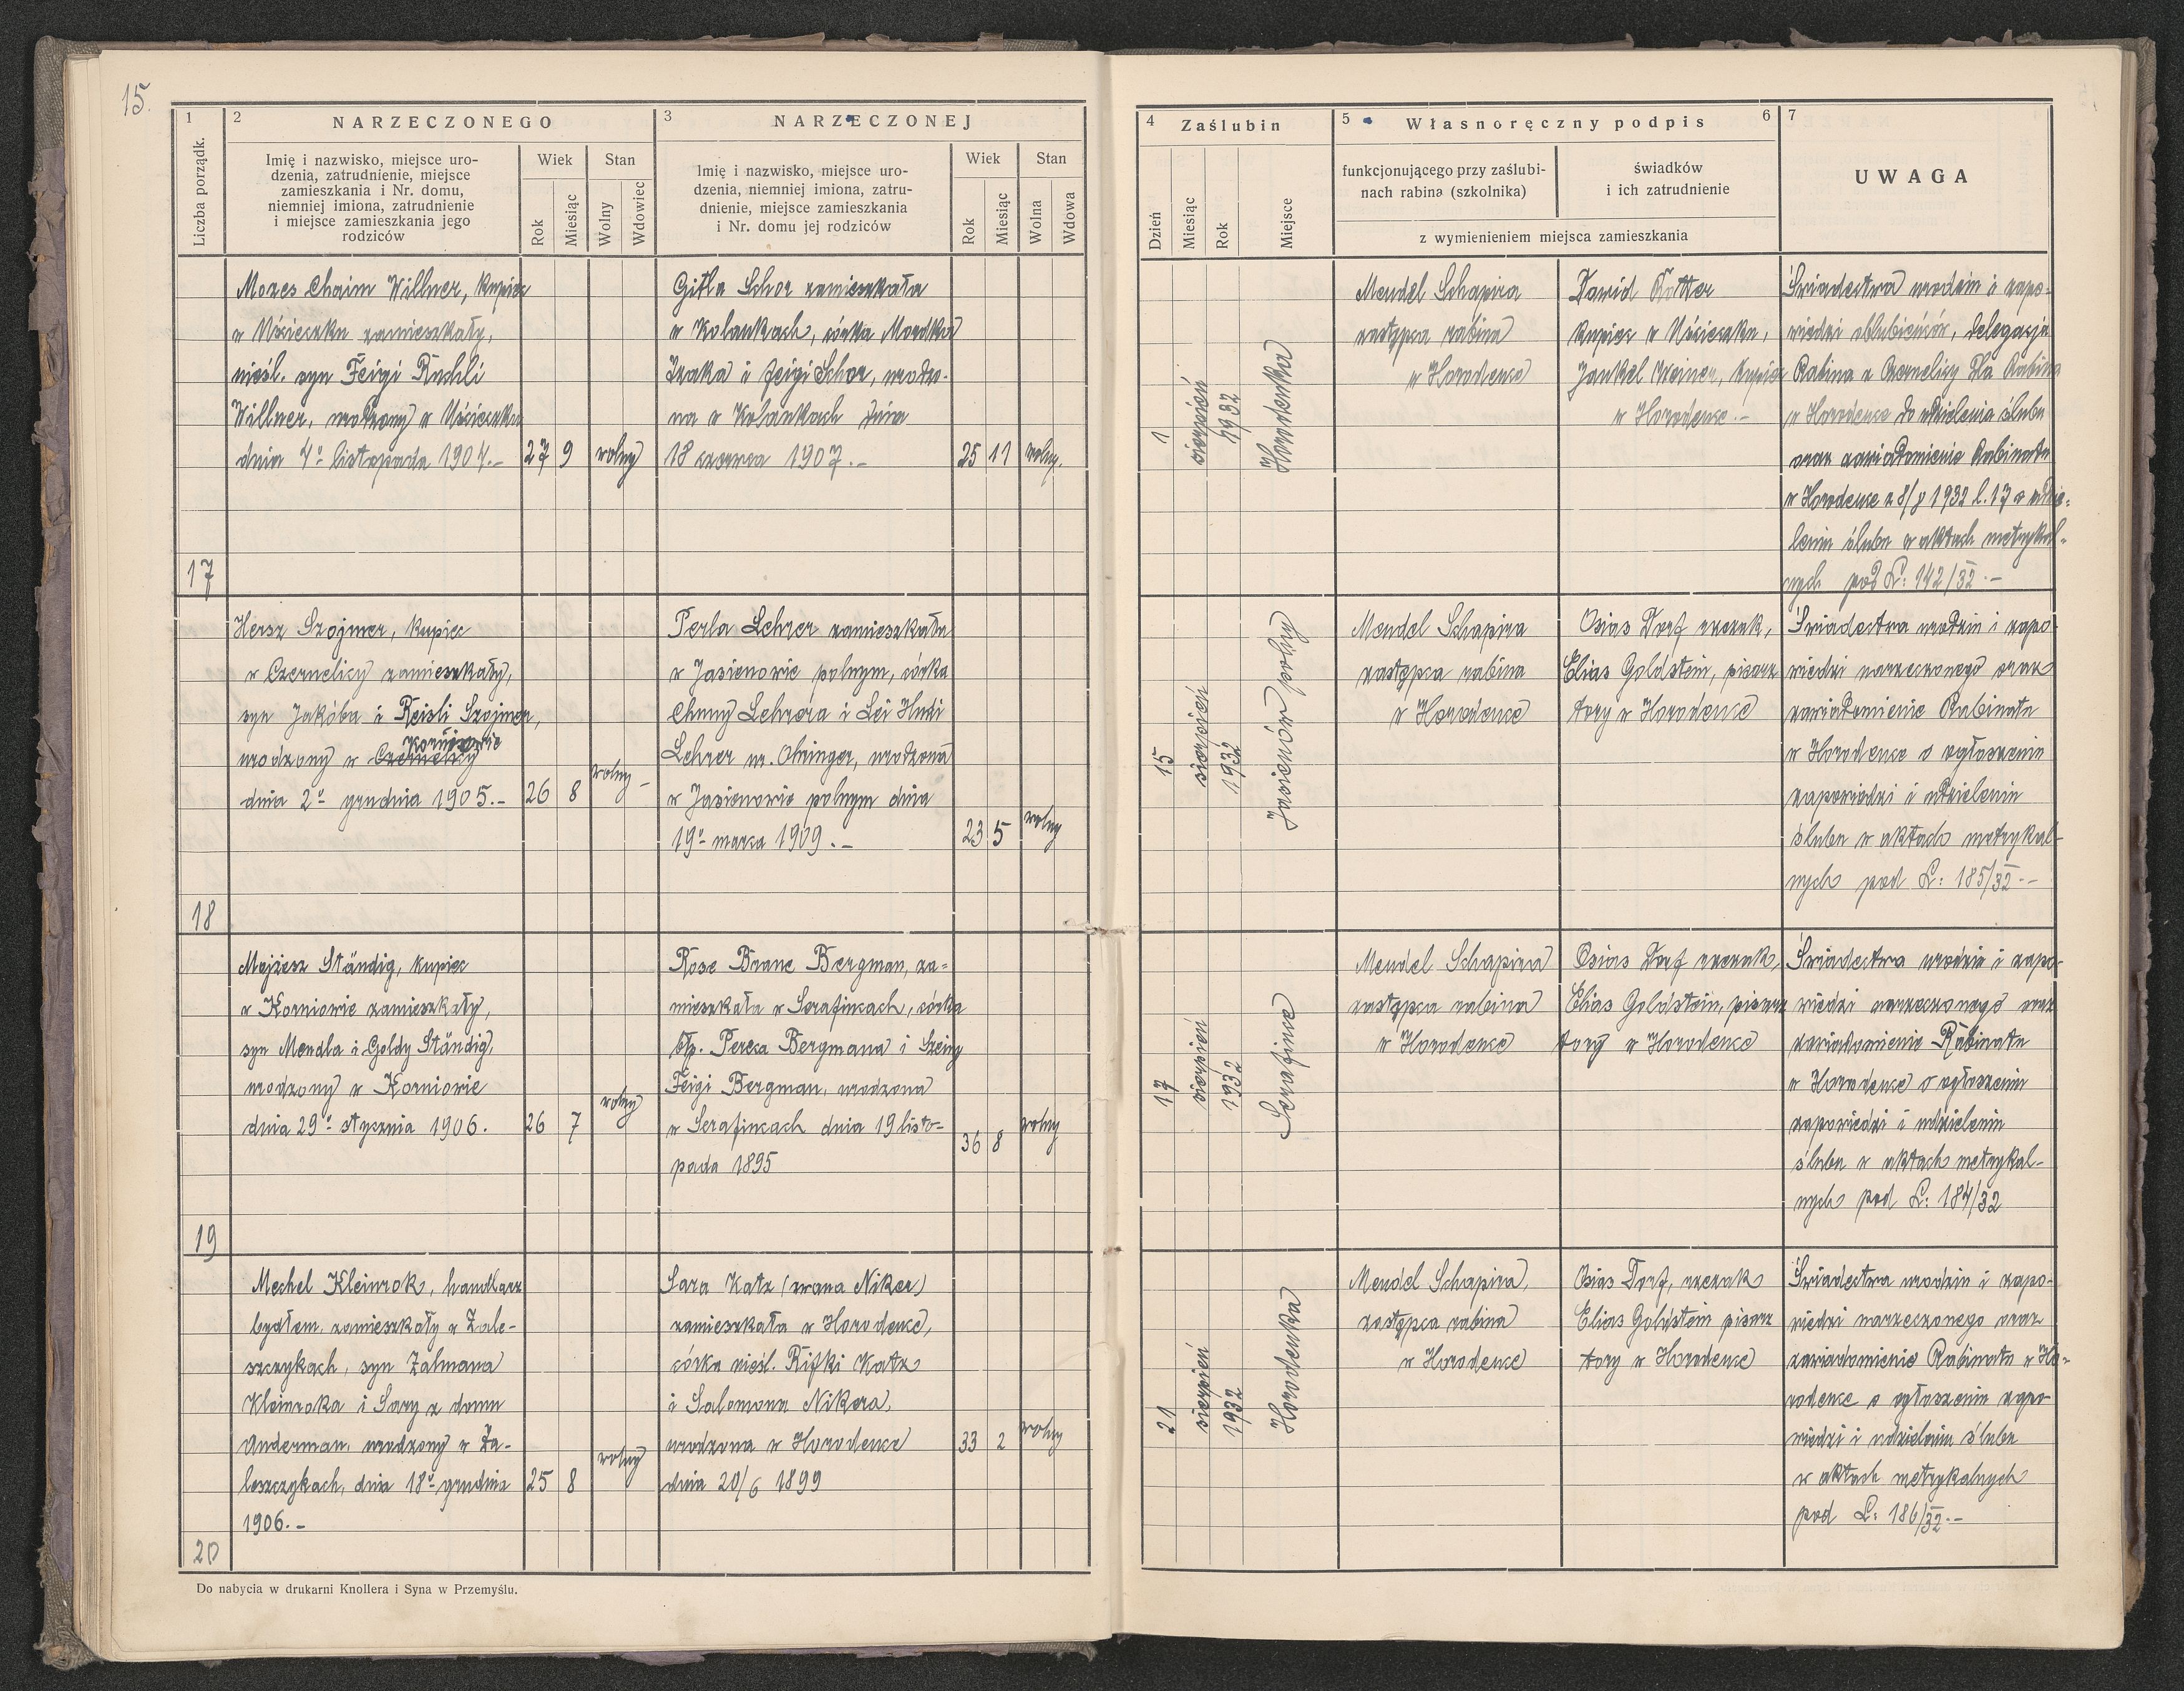 15.
1
2
NARZECZONEGO
3
NARZECZONEJ
Liczba porządk.
Imię i nazwisko, miejsce uro-
dzenia, zatrudnienie, miejsce
zamieszkania i Nr. domu,
niemniej imiona, zatrudnienie
i miejsce zamieszkania jego
rodziców
Wiek
Stan
Rok
Miesiąc
Wolny
Wdowiec
Imię i nazwisko, miejsce uro-
dzenia, niemniej imiona, zatru-
dnienie, miejsce zamieszkania
i Nr. domu jej rodziców
Wiek
Stan
Rok
Miesiąc
Wolna
Wdowa
17
Mozes Chaim Willner, kupiec
w Uścieczku zamieszkały,
nieśl. syn Feigi Ruchli
Willner, urodzony w Uścieczku
dnia 4º listopada 1904.–
27 9 wolny
Gitla Schor zamieszkała
w Kolankach, córka Mordka
Izaka i Feigi Schor, urodzo-
na w Kolankach dnia
18 czerwca 1907.–
25 11 wolny.
18
Hersz Szojmer, kupiec
w Czernelicy zamieszkały,
syn Jakóba i Reisli Szojmer,
Korniowie
urodzony w Czernelicy
dnia 2º grudnia 1905.–
26 8 wolny –
Perla Lehrer zamieszkała
w Jasionowie polnym, córka
Chuny Lehrera i Lei Hudi
Lehrer ur. Ohringer, urodzona
w Jasionowie polnym dnia
19º marca 1909.–
23 5 wolny
19
Mojżesz Ständig, kupiec
w Korniowie zamieszkały,
syn Mendla i Goldy Ständig,
urodzony w Korniowie
dnia 29º stycznia 1906.
26 7 wolny
Rose Brane Bergman, za-
mieszkała w Serafincach, córka
błp. Pereca Bergmana i Szeiny
Feigi Bergman, urodzona
w Serafincach dnia 19 listo-
pada 1895
36 8 wolny
20
Mechel Kleinrok, handlarz
bydłem, zamieszkały w Zale-
szczykach, syn Zalmana
Kleinroka i Sary z domu
Anderman, urodzony w Za-
leszczykach, dnia 18º grudnia
1906.–
25 8 wolny
Sara Katz (zwana Niker)
zamieszkała w Horodence,
córka nieśl. Rifki Katz
i Salomona Nikera,
urodzona w Horodence
dnia 20/6 1899
33 2 wolny
Do nabycia w drukarni Knollera i Syna w Przemyślu.
4
Zaślubin
5
Własnoręczny podpis
6
7
Dzień
Miesiąc
Rok
Miejsce
funkcjonującego przy zaślubi-
nach rabina (szkolnika)
świadków
i ich zatrudnienie
z wymienieniem miejsca zamieszkania
UWAGA
1
sierpień
1932
Horodenka
Mendel Schapira
zastępca rabina
w Horodence
Dawid Rotter
kupiec w Uścieczku,
Jankel Weiner, kupiec
w Horodence.–
Świadectwa urodzin i zapo-
wiedzi oblubieńców, delegacja
Rabina z Czernelicy dla Rabina
w Horodence do udzielenia ślubu
oraz zawiadomienie Rabinatu
w Horodence z 8/8 1932 l. 17 o udzie-
leniu ślubu w aktach metrykal-
nych pod L: 142/32.–
15
sierpień
1932
Jasienów polny
Mendel Schapira
zastępca rabina
w Horodence
Osias Dorf rzezak,
Elias Goldstein, pisarz
tory w Horodence
Świadectwa urodzin i zapo-
wiedzi narzeczonego oraz
zawiadomienie Rabinatu
w Horodence o ogłoszeniu
zapowiedzi i udzieleniu
ślubu w aktach metrykal-
nych pod L: 185/32.–
17
sierpień
1932
Serafince
Mendel Schapira
zastępca rabina
w Horodence
Osias Dorf rzezak,
Elias Goldstein, pisarz
tory w Horodence
Świadectwa urodzin i zapo-
wiedzi narzeczonego oraz
zawiadomienie Rabinatu
w Horodence o ogłoszeniu
zapowiedzi i udzieleniu
ślubu w aktach metrykal-
nych pod L: 184/32
21
sierpień
1932
Horodenka
Mendel Schapira,
zastępca rabina
w Horodence
Osias Dorf, rzezak
Elias Goldstein pisarz
tory w Horodence
Świadectwa urodzin i zapo-
wiedzi narzeczonego oraz
zawiadomienie Rabinatu w Ho-
rodence o ogłoszeniu zapo-
wiedzi i udzieleniu ślubu
w aktach metrykalnych
pod L: 186/32.–